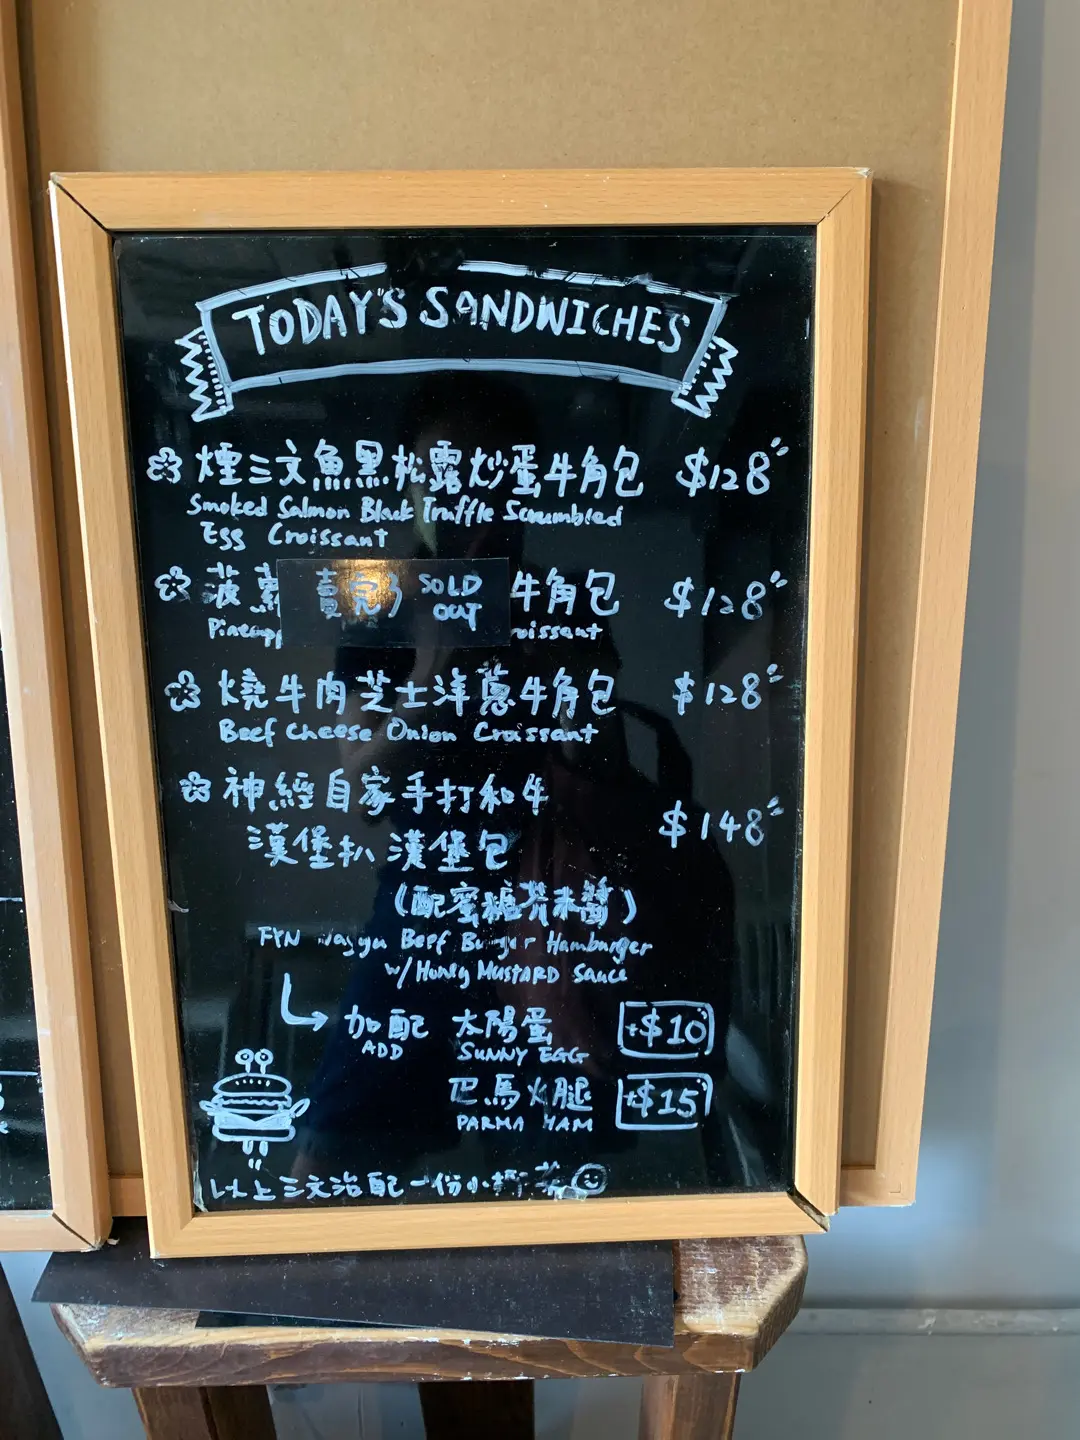 TODAY'S SANDWICHES
煙三文魚黑松露炒蛋牛角包 $128
Smoked Salmon Black Truffle Scrambled
Egg Croissant
菠 賣完了 SOLD OUT 牛角包 $128
燒牛肉芝士洋蔥牛角包 $128
Beef Cheese Onion Croissant
神經自家手打和牛
漢堡扒漢堡包 $148
(配蜜糖芥末醬)
FYN Wagyu Beef Burger Hamburger
w/ Honey MUSTARD Sauce
加配 太陽蛋 +$10
ADD SUNNY EGG
巴馬火腿 +$15
PARMA HAM
以上三文治配一份小